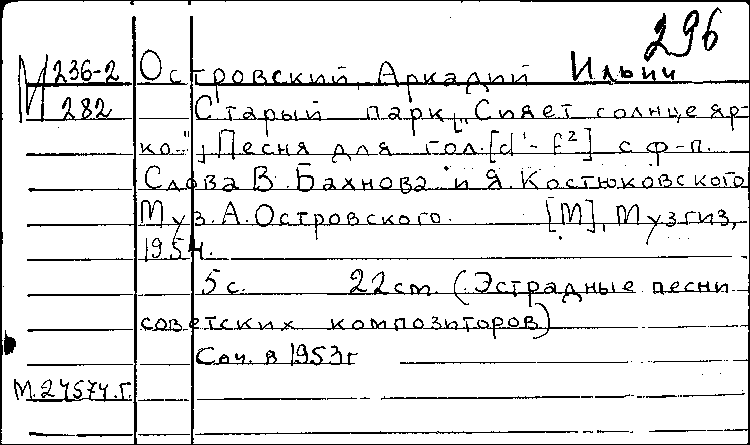 296
М 236-2 Островский, Аркадий Ильич
282 Старый парк. [„Сияет солнце яр-
ко..."], Песня для гол. [d¹-f²] с ф-п.
Слова В. Бахнова и Я. Костюковского
Муз. А. Островского. [М], Музгиз,
1954.
5 с. 22 cm. (Эстрадные песни
советских композиторов)
Соч. в 1953 г
М.24574.г.